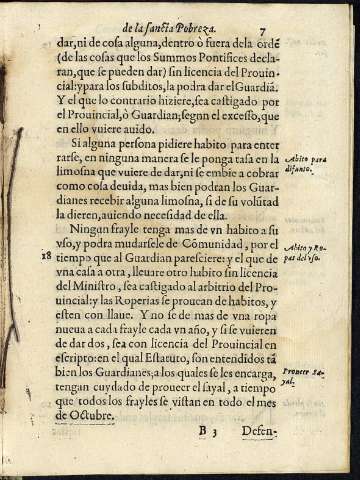 de la sancta Pobreza. 7
dar, ni de cosa alguna, dentro ò fuera dela ordẽ
(de las cosas que los Summos Pontifices decla-
ran, que se pueden dar) sin licencia del Prouin-
cial: y para los subditos, la podra dar el Guardiã.
Y el que lo contrario hiziere, sea castigado por
el Prouincial, ò Guardian; segnn el excesso, que
en ello vuiere auido.
Si alguna persona pidiere habito para enter
rarse, en ninguna manera se le ponga tasa en la
Abito para
limosna que vuiere de dar, ni se embie a cobrar
difunto.
como cosa deuida, mas bien podran los Guar-
dianes recebir alguna limosna, si de su volũtad
la dieren, auiendo necesidad de ella.
Ningun frayle tenga mas de vn habito a su
vso, y podra mudarsele de Cõmunidad, por el
Abito y Ro-
18 tiempo que al Guardian paresciere: y el que de
pas del vso.
vna casa a otra, lleuare otro habito sin licencia
del Ministro, sea castigado al arbitrio del Pro-
uincial: y las Roperias se prouean de habitos, y
esten con llaue. Y no se de mas de vna ropa
nueua a cada frayle cada vn año, y si se vuieren
de dar dos, sea con licencia del Prouincial en
escripto: en el qual Estatuto, son entendidos tã
bien los Guardianes; a los quales se les encarga,
Proueer Sa-
tengan cuydado de proueer el sayal, a tiempo
yal.
que todos los frayles se vistan en todo el mes
de Octubre.
B 3 Defen-